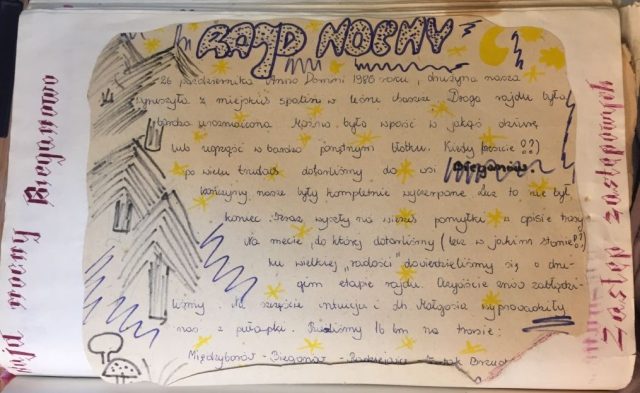 RAJD NOCNY
26 października Anno Domini 1986 roku, drużyna nasza
wyruszyła z miejskiej spalin w leśne chaszcze. Droga rajdu była
bardzo urozmaicona. Można było wpaść w jakąś dziurę
lub ugrząść w bardzo porządnym błotku. Kiedy wreszcie (??)
po wielu trudach dotarliśmy do wsi Bieganów.
kończyny nasze były kompletnie wyczerpane. Lecz to nie był
koniec. Teraz wyszły na wierzch pomyłki w opisie trasy
Na mecie, do której dotarliśmy (lecz w jakim stanie??)
ku wielkiej „radości" dowiedzieliśmy się o dru-
gim etapie rajdu. Oczywiście znów zabłądzi-
liśmy. Na szczęście intuicja i dh. Małgosia wyprowadziły
nas z pułapki. Przeszliśmy 16 km na trasie:
Międzyborów - Bieganów - Radziejowice
Bieganowo
nocny
Zastęp zastępowych